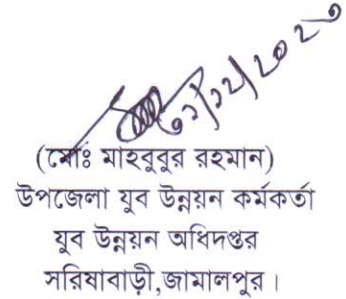 ৩১/১২/২০২৩
(মোঃ মাহবুবুর রহমান)
উপজেলা যুব উন্নয়ন কর্মকর্তা
যুব উন্নয়ন অধিদপ্তর
সরিষাবাড়ী,জামালপুর।